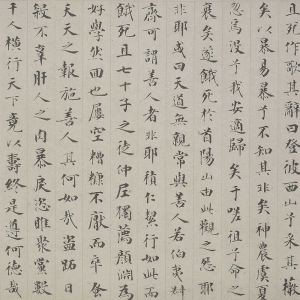 且死作歌其辭曰登彼西山兮采其薇
矣以暴易暴兮不知其非矣神農虞夏
忽焉沒兮我安適歸矣于嗟徂兮命之
衰矣遂餓死於首陽山由此觀之怨耶
非耶或曰天道無親常與善人若伯夷叔
齊可謂善人者非耶積仁絜行如此而
餓死且七十子之徒仲尼獨薦顏淵為
好學然回也屢空糟糠不厭而卒蚤
夭天之報施善人其何如哉盜跖日
殺不辜肝人之肉暴戾恣睢聚黨數
千人橫行天下竟以壽終是遵何德哉